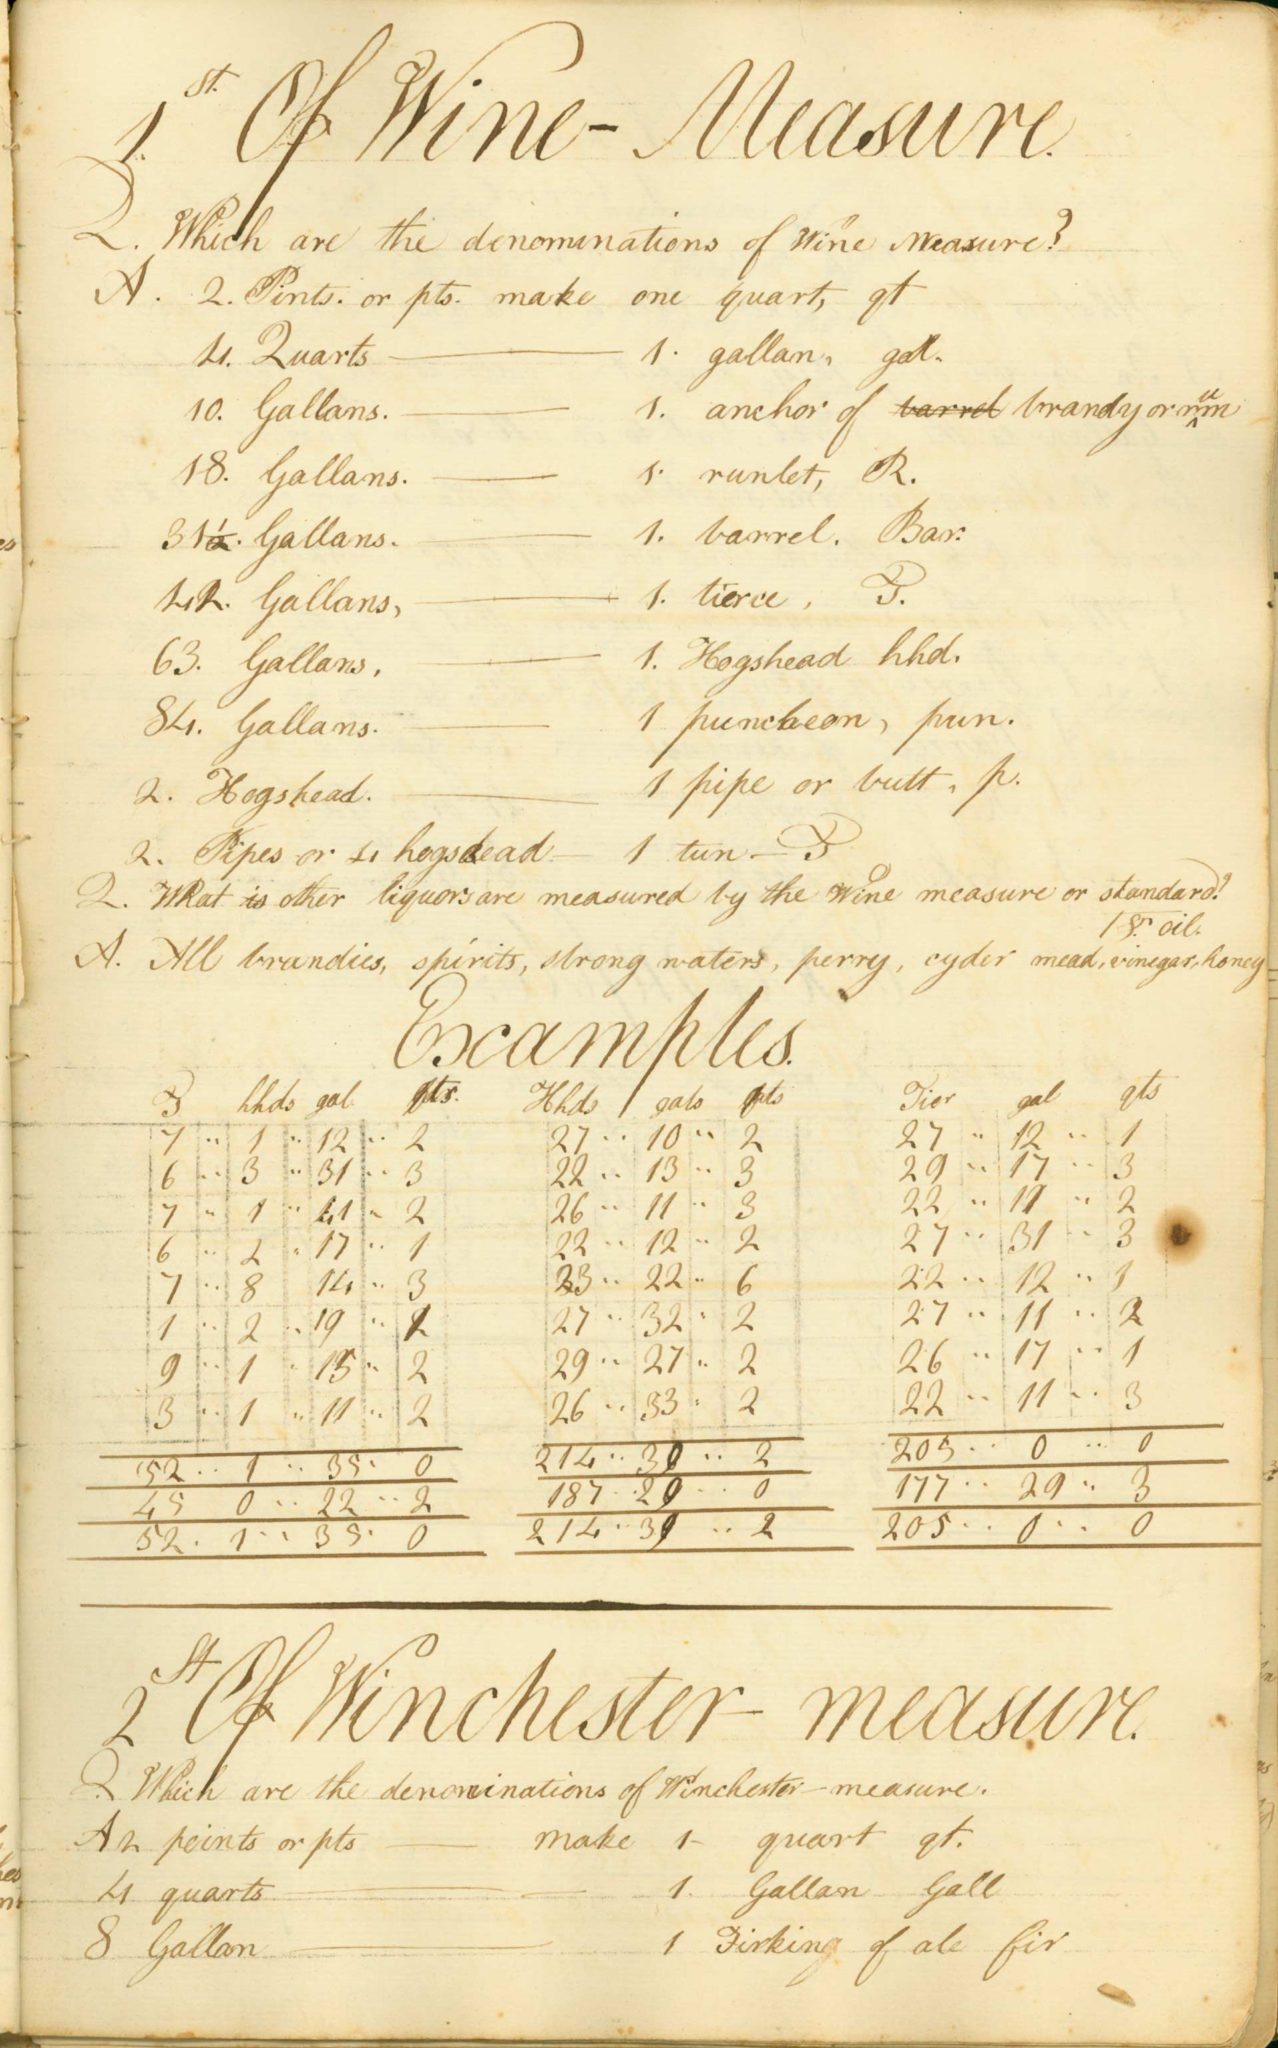 1st. Of Wine-Measure.
Q. Which are the denominations of Wine Measure?
A. 2. Pints. or pts. make one quart, qt
4. Quarts — 1. gallan, gal.
10. Gallans. — 1. anchor of barrel brandy or rum
18. Gallans. — 1. runlet, R.
31½. Gallans. — 1. barrel. Bar:
42. Gallans, — 1. tierce, T.
63. Gallans, — 1. Hogshead hhd.
84. Gallans. — 1 puncheon, pun.
2. Hogshead. — 1 pipe or butt, p.
2. Pipes or 4 hogshead — 1 tun — T
Q. What is other liquors are measured by the Wine measure or standard?
A. All brandies, spirits, strong waters, perry, cyder mead, vinegar, honey
oil.
Examples.
T hhds gal pts. Hhds gals pts Tier gal qts
7 " 1 " 12 " 2 27 " 10 " 2 27 " 12 " 1
6 " 3 " 31 " 3 22 " 13 " 3 29 " 17 " 3
7 " 1 " 41 " 2 26 " 11 " 3 22 " 11 " 2
6 " 2 " 17 " 1 22 " 12 " 2 27 " 31 " 3
7 " 8 14 " 3 23 " 22 " 6 22 " 12 " 1
1 " 2 " 19 " 27 " 32 " 2 27 " 11 " 2
9 " 1 " 15 " 2 29 " 27 " 2 26 " 17 " 1
3 " 1 " 11 " 2 26 " 33 " 2 22 " 11 " 3
52 " 1 " 35 " 0 214 " 30 " 2 205 " 0 " 0
45 0 " 22 " 2 187 " 20 " 0 177 " 29 " 3
52 " 1 " 35 " 0 214 " 30 " 2 205 " 0 " 0
2st Of Winchester-measure.
Q Which are the denominations of Winchester-measure.
A 2 peints or pts — make 1- quart qt.
4 quarts — 1. Gallan Gall
8 Gallan — 1 Firking of ale fir